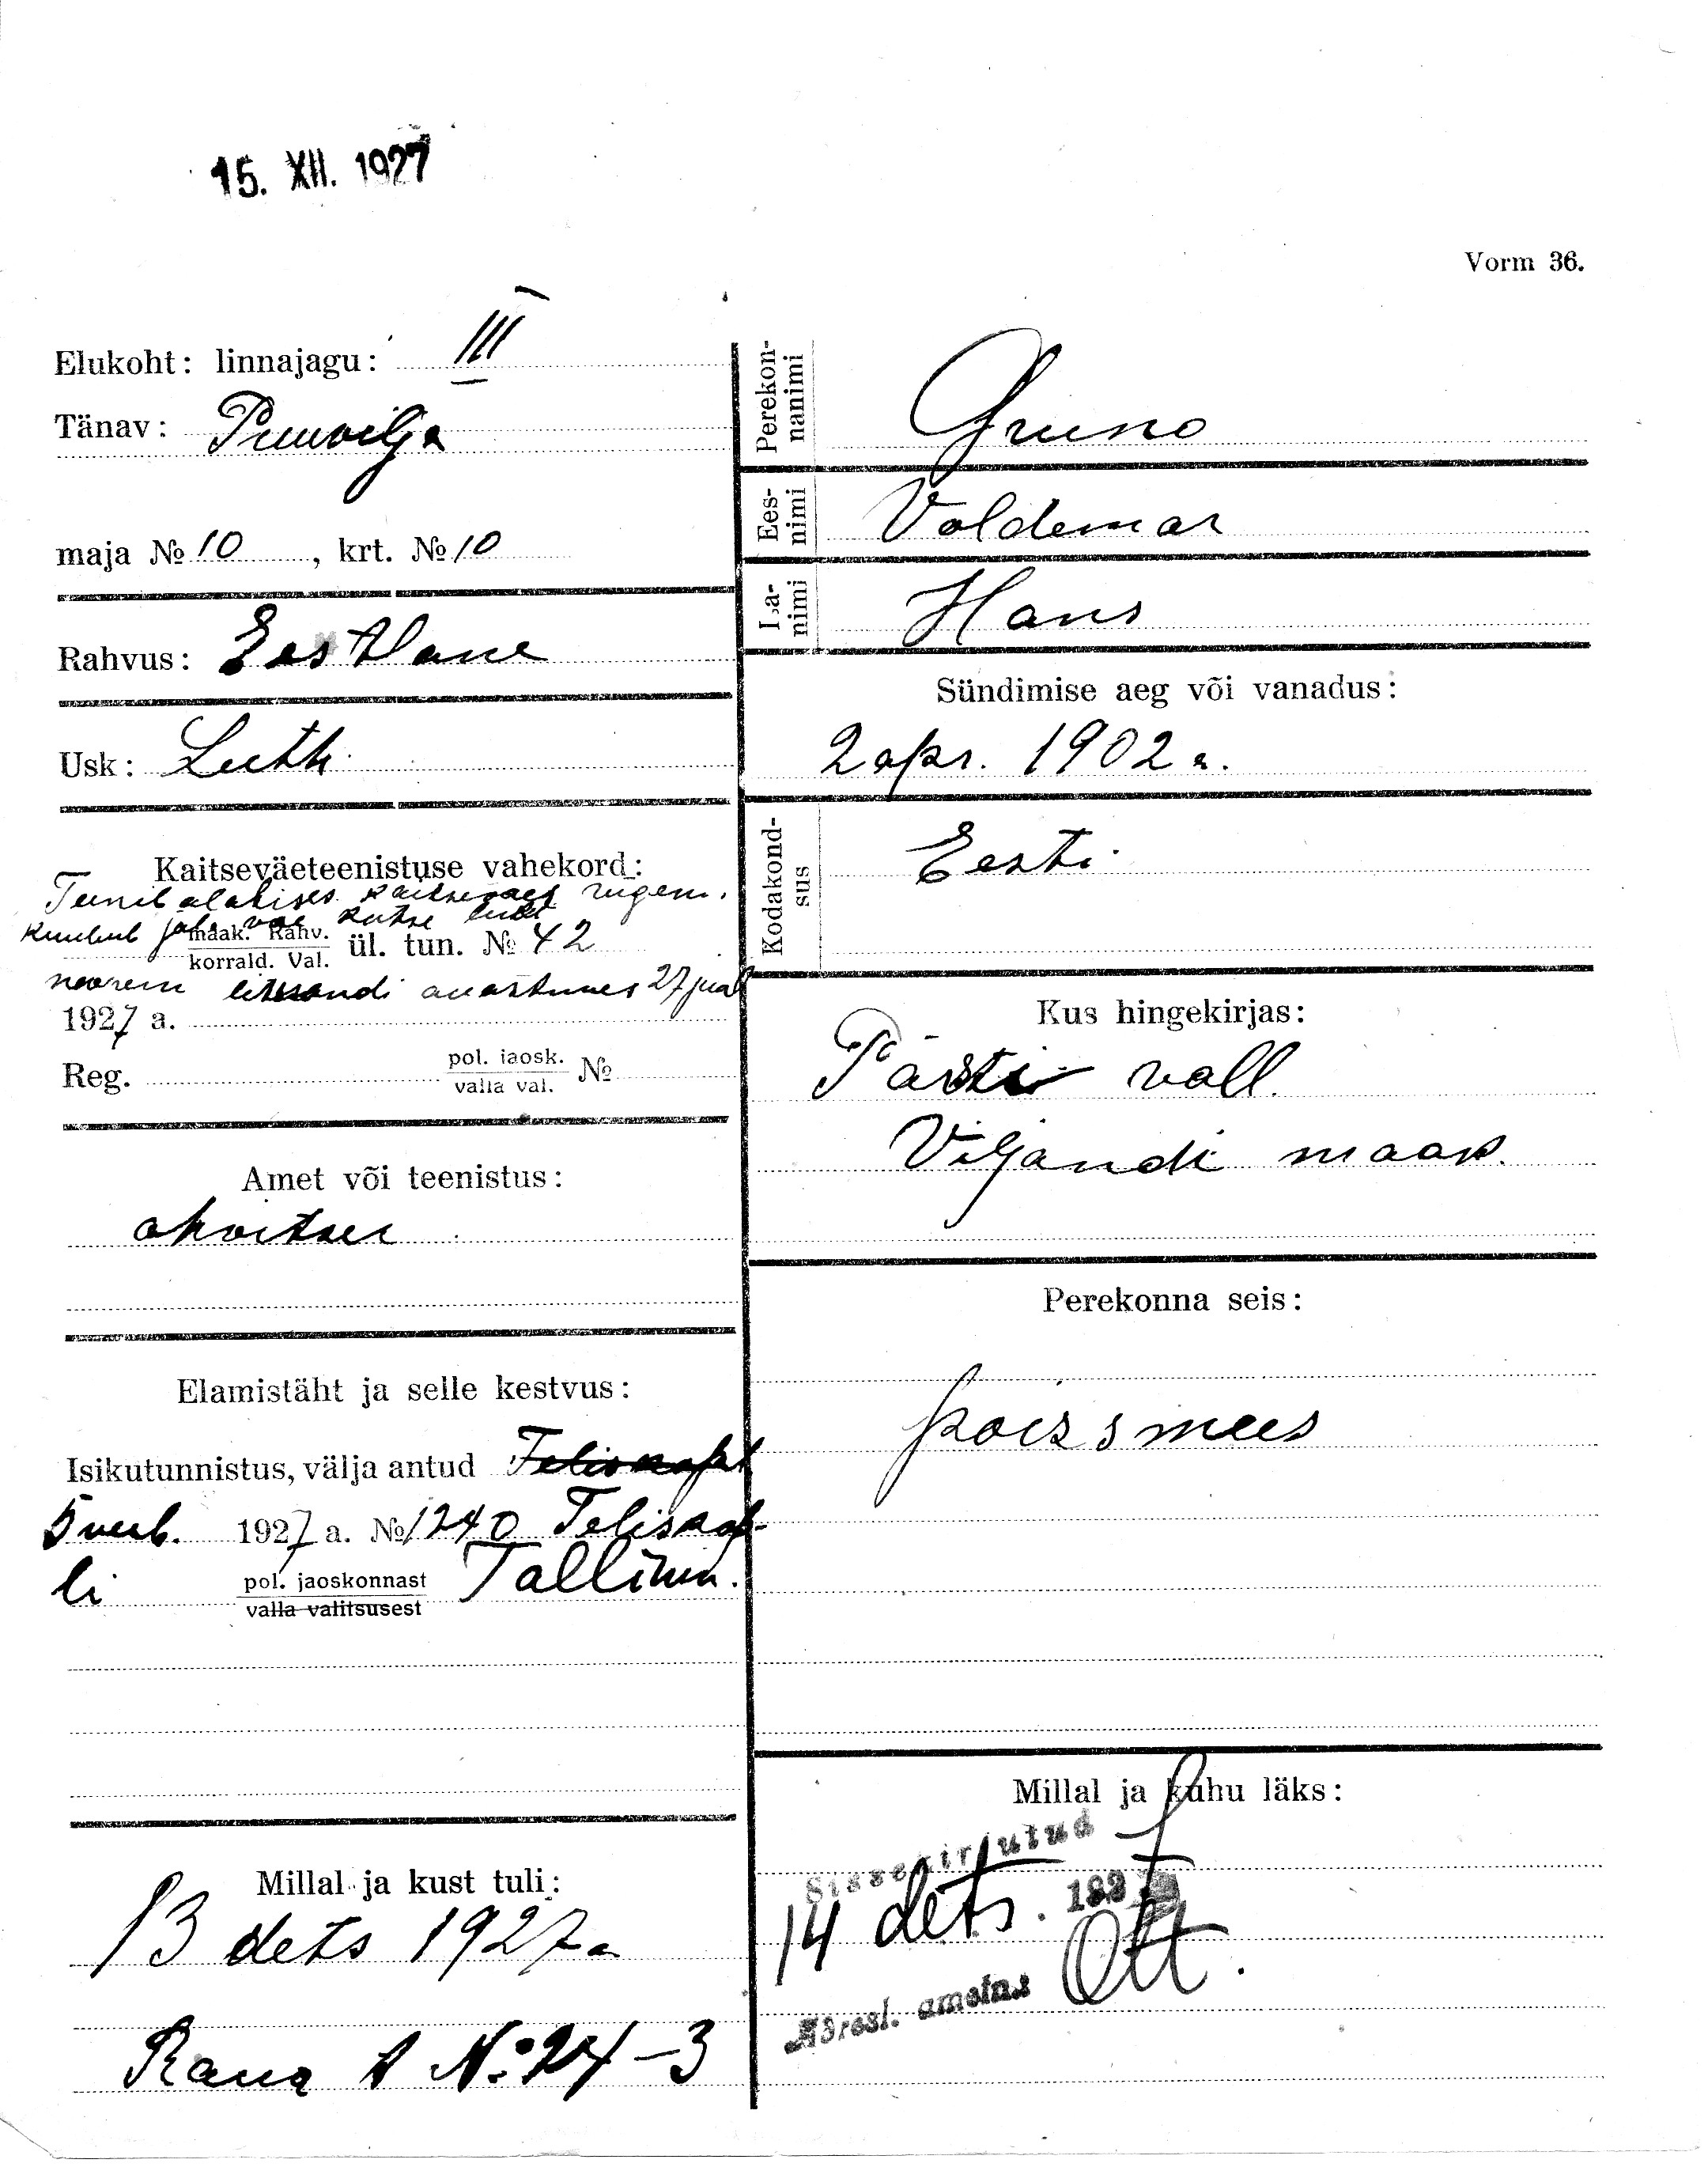 15. XII. 1927
Vorm 36.
Elukoht: linnajagu: III
Tänav: Puuvilja
maja № 10, krt. № 10
Rahvus: Eestlane
Usk: Luth.
Kaitseväeteenistuse vahekord:
Teenib alalises kaitseväes
Kuulub
maak. Rahv.
korrald. Val. ül. tun. № 42
noorem leitnandi auastmes 27
1927 a.
Reg. pol. jaosk.
valla val. №
Amet või teenistus:
ohvitser
Elamistäht ja selle kestvus:
Isikutunnistus, välja antud Teliskopl
5 veeb. 1927 a. № 1240 Teliskop-
li pol. jaoskonnast Tallinn.
valla valitsusest
Millal ja kust tuli:
13 dets 1927 a
Raua t №: 24-3
Perekon-
nanimi Gruno
Ees-
nimi Voldemar
Isa-
nimi Hans
Sündimise aeg või vanadus:
2 apr. 1902 a.
Kodakond-
sus Eesti
Kus hingekirjas:
Pärsti vall.
Viljandi maak.
Perekonna seis:
poissmees
Millal ja kuhu läks:
Sissekirjutud
14 dets. 192
Adressl. ametnik Ott.